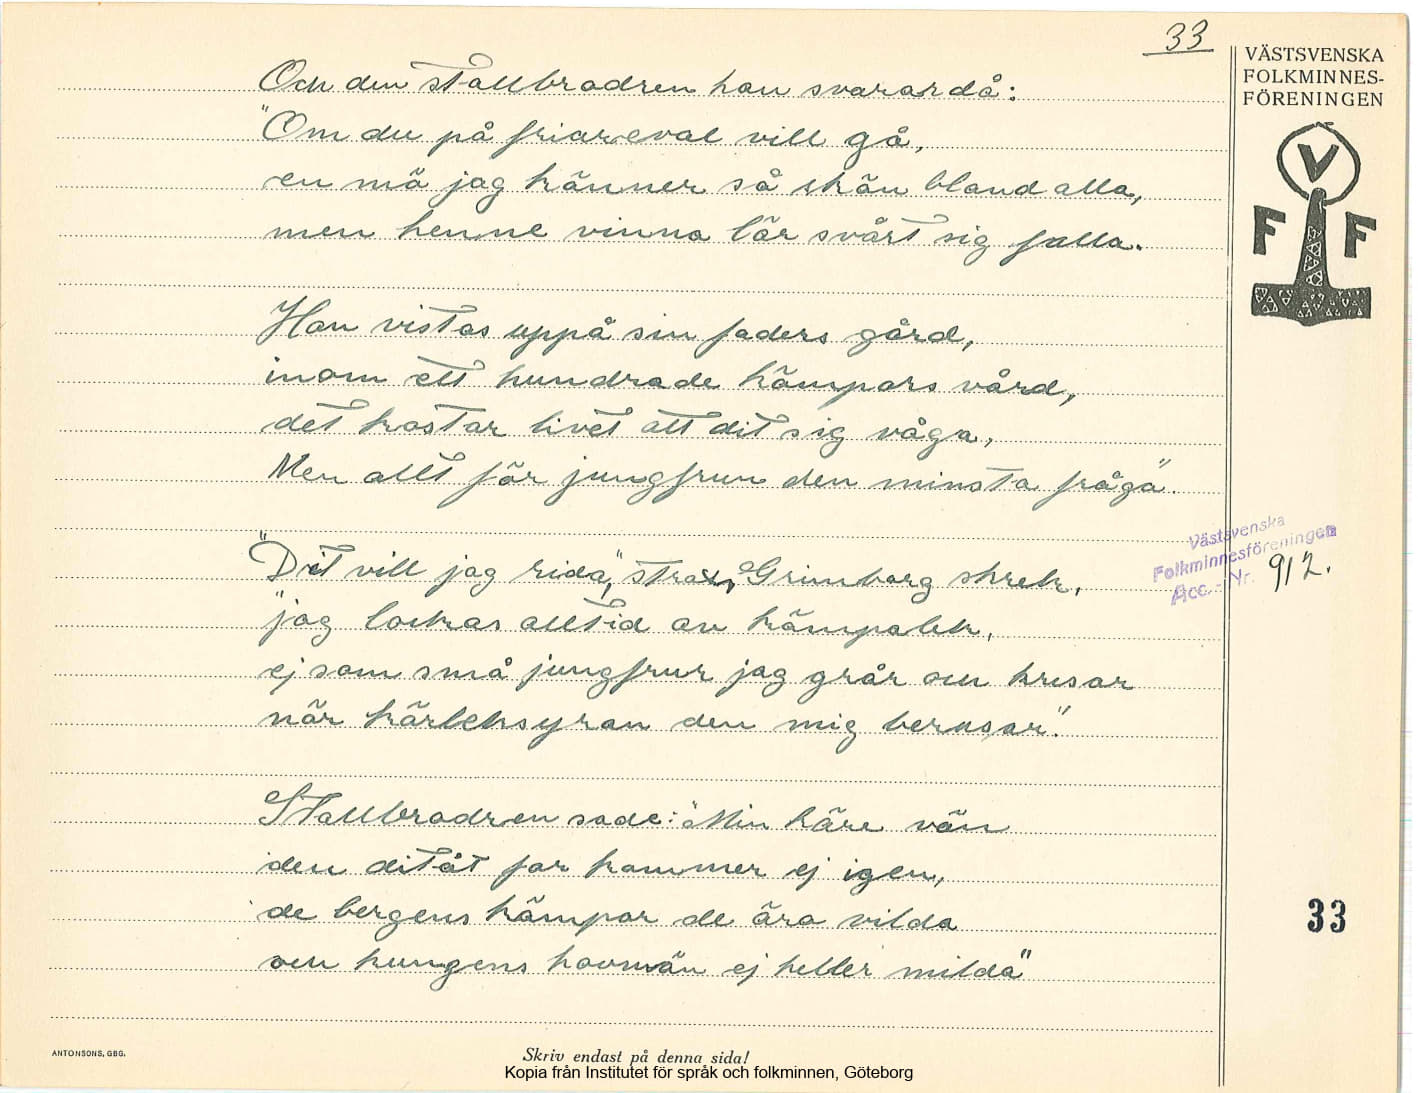 33
VÄSTSVENSKA
FOLKMINNES-
FÖRENINGEN
V
F F
Och den stallbrodren han svarar då:
"Om du på friareval vill gå,
en mö jag känner så skön bland alla,
men henne vinna lär svårt sig falla.
Hon vistas uppå sin faders gård,
inom ett hundrade kämpars vård,
det kostar livet att dit sig våga,
Men allt för jungfrun den minsta fråga".
"Dit vill jag rida", strax Grimborg skrek,
"jag lockas alltid av kämpalek,
ej som små jungfrur jag grår och krusar
när kärleksyran den mig berusar".
Västsvenska
Folkminnesföreningen
Acc.-Nr. 912.
Stallbrodren sade: "Min käre vän
den ditåt far kommer ej igen,
de bergens kämpar de äro vilda
och kungens hovmän ej heller milda"
33
ANTONSONS, GBG.
Skriv endast på denna sida!
Kopia från Institutet för språk och folkminnen, Göteborg